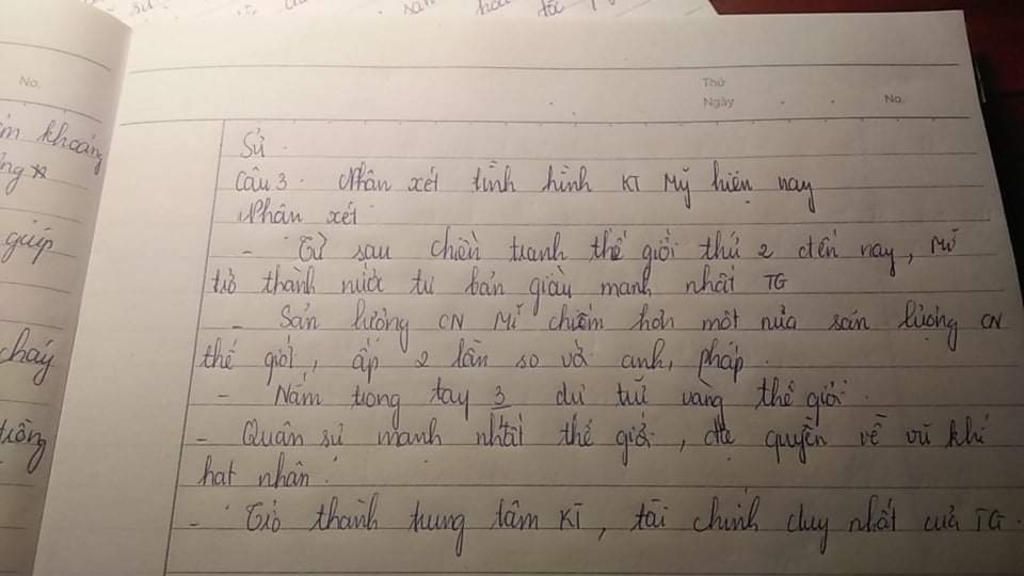 No.
Thứ
Ngày
No.
khoáng
giúp
cháy
Sử
Câu 3. Nhân xét tình hình KT Mỹ hiện nay
Nhân xét
- Từ sau chiến tranh thế giới thứ 2 đến nay, Mĩ
trở thành nước tư bản giàu mạnh nhất TG
- Sản lượng CN Mĩ chiếm hơn một nửa sản lượng CN
thế giới, ấp 2 lần so với anh, pháp.
- Nắm trong tay 3 dự trữ vàng thế giới.
- Quân sự mạnh nhất thế giới, quyền về vũ khí
hạt nhân.
- Trở thành trung tâm KT, tài chính duy nhất của TG.